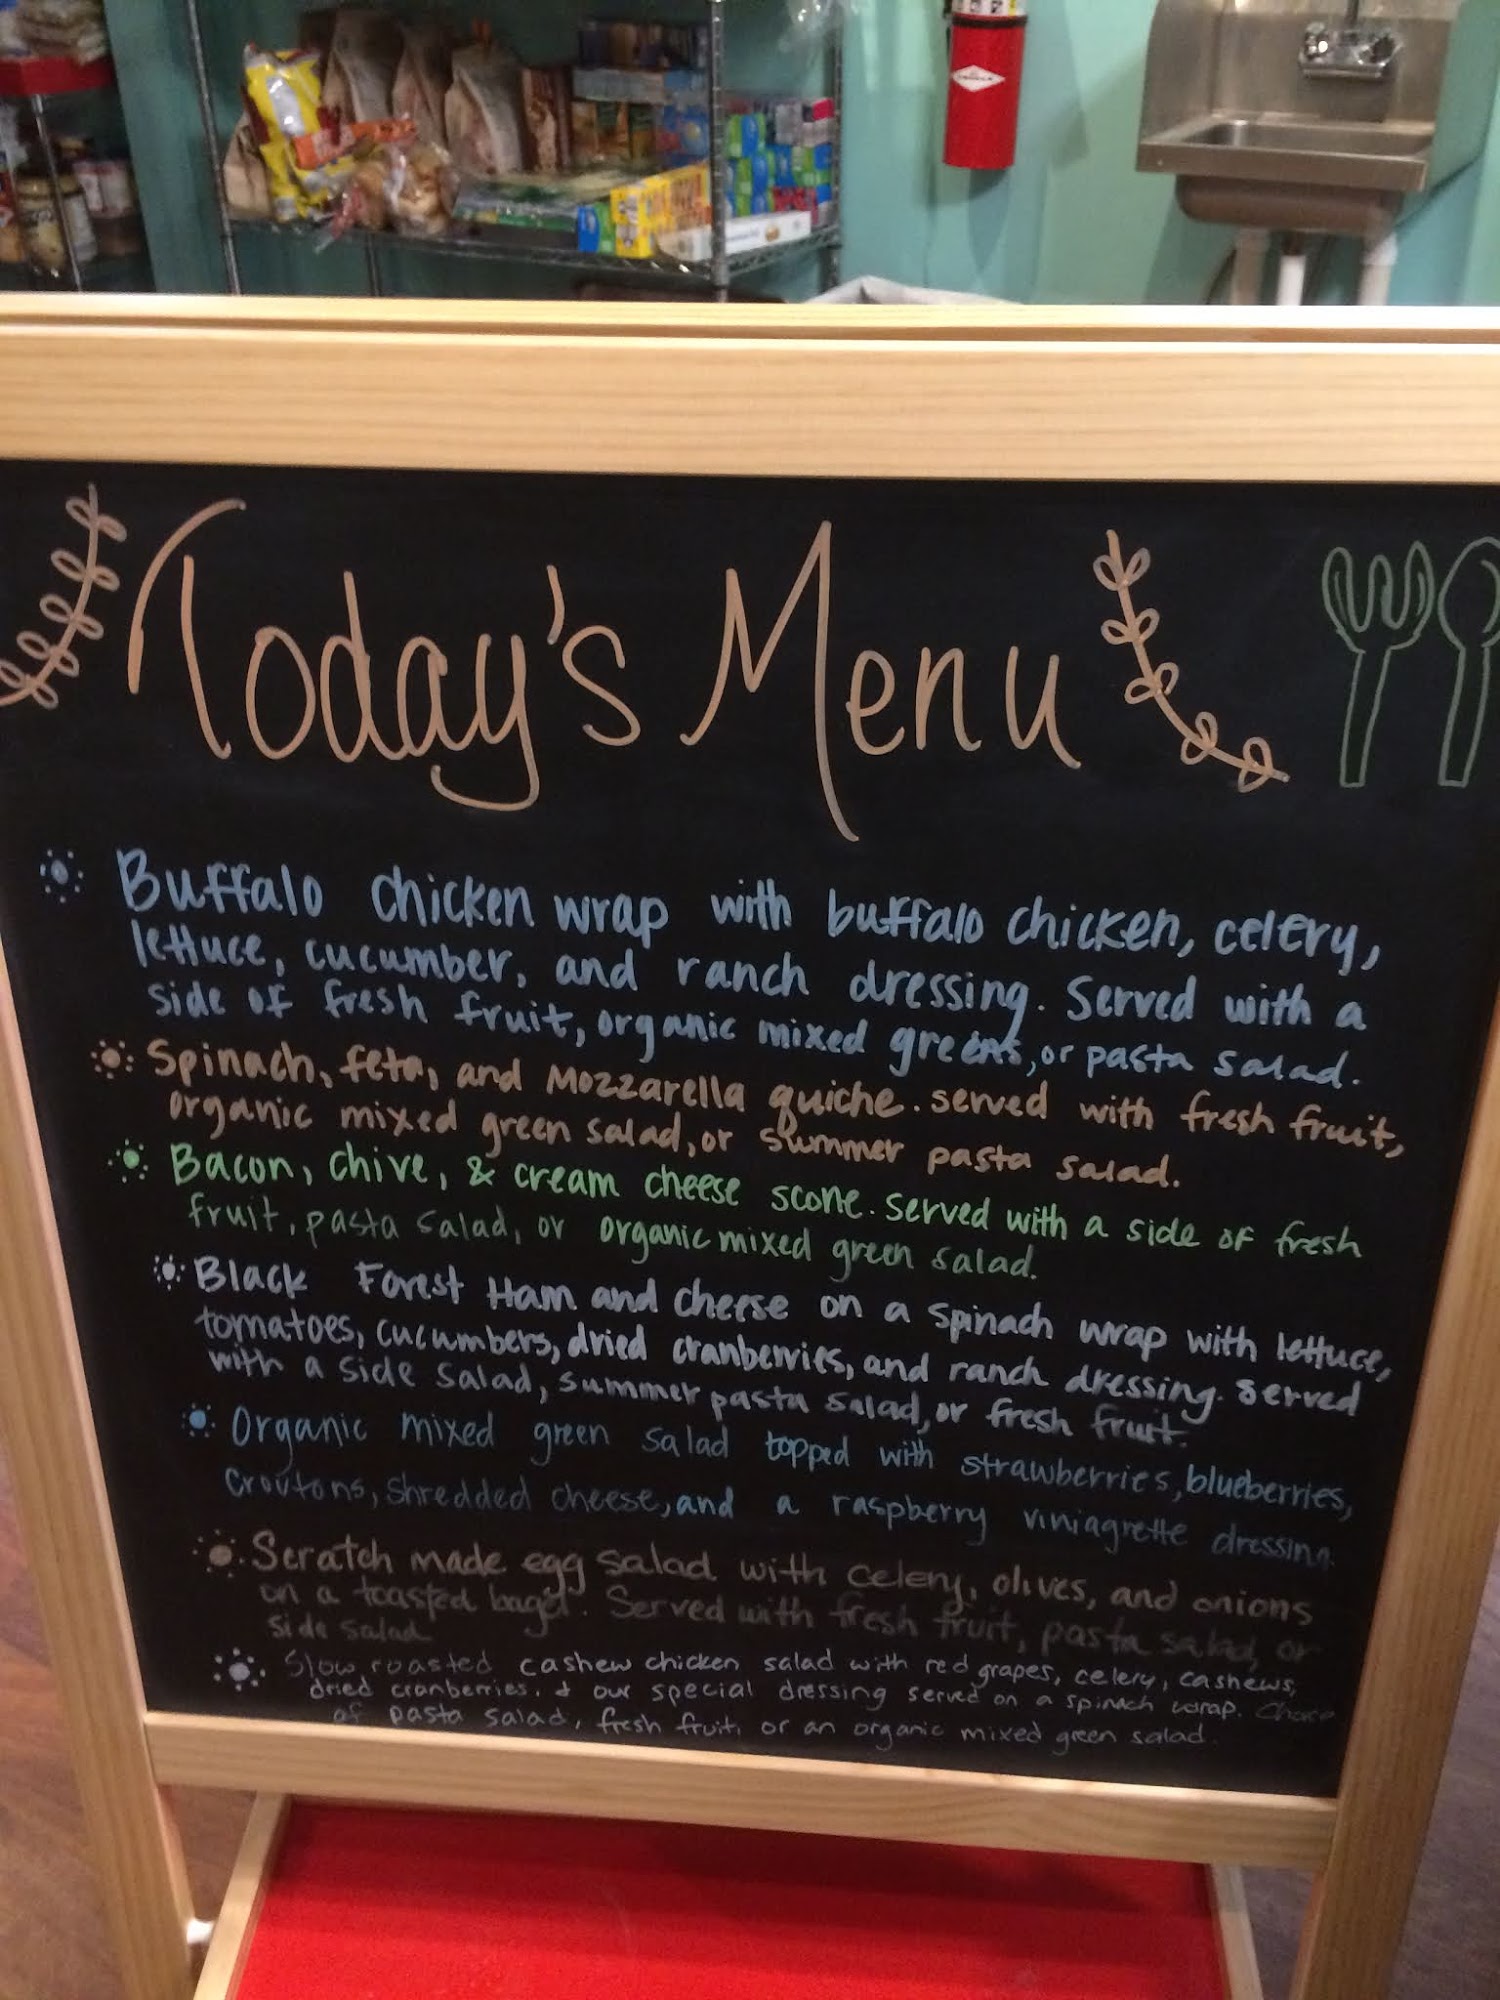 Today's Menu
Buffalo chicken wrap with buffalo chicken, celery,
lettuce, cucumber, and ranch dressing. Served with a
side of fresh fruit, organic mixed greens, or pasta salad.
Spinach, feta, and Mozzarella quiche. served with fresh fruit,
organic mixed green salad, or summer pasta salad.
Bacon, chive, & cream cheese scone. served with a side of fresh
fruit, pasta salad, or organic mixed green salad.
Black Forest Ham and cheese on a spinach wrap with lettuce,
tomatoes, cucumbers, dried cranberries, and ranch dressing. served
with a side salad, summer pasta salad, or fresh fruit.
Organic mixed green salad topped with strawberries, blueberries,
croutons, shredded cheese, and a raspberry viniagrette dressing.
Scratch made egg salad with celery, olives, and onions
on a toasted bagel. Served with fresh fruit, pasta salad, or
side salad
Slow roasted cashew chicken salad with red grapes, celery, cashews,
dried cranberries, & our special dressing served on a spinach wrap. Choice
of pasta salad, fresh fruit, or an organic mixed green salad.